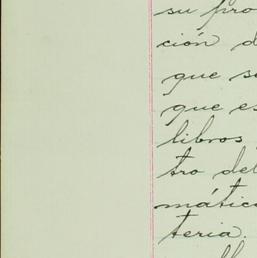 su pro
ción d
que se
que es
libros
tro del
mática
teria.